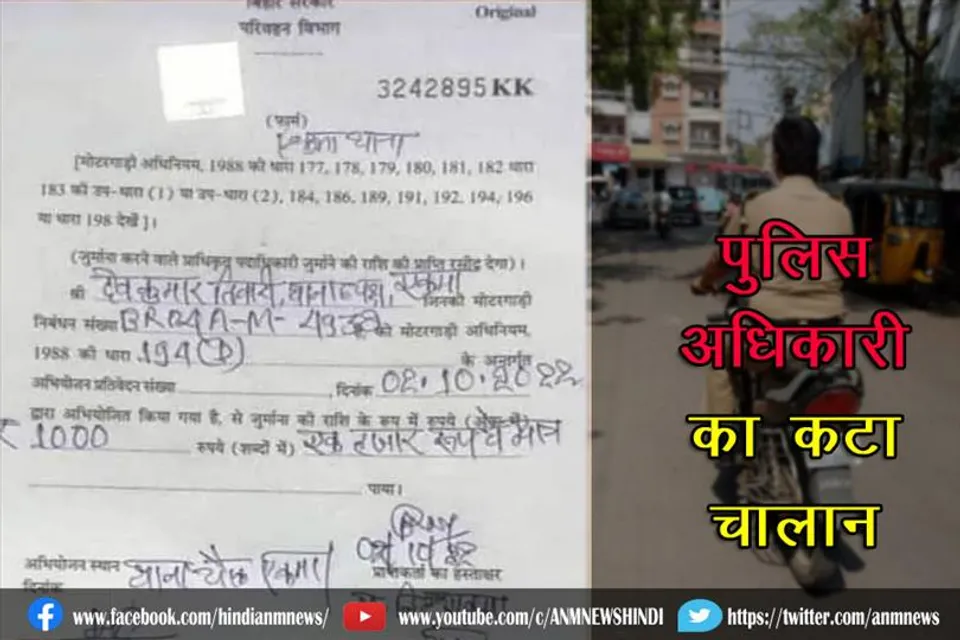 बिहार सरकार
Original
परिवहन विभाग
3242895 KK
(फार्म)
एकमा थाना
[मोटरगाड़ी अधिनियम, 1988 की धारा 177, 178, 179, 180, 181, 182 धारा
183 की उप-धारा (1) या उप-धारा (2), 184, 186, 189, 191, 192, 194, 196
या धारा 198 देखें]।
(जुर्माना करने वाले प्राधिकृत पदाधिकारी जुर्माने की राशि की प्राप्ति रसीद देगा)।
श्री देवकुमार तिवारी, थानाध्यक्ष, एकमा जिनकी मोटरगाड़ी
निबंधन संख्या BR04A-M- को मोटरगाड़ी अधिनियम,
1988 की धारा 194(D) के अन्तर्गत
अभियोजन प्रतिवेदन संख्या दिनांक 02.10.2022
द्वारा अभियोजित किया गया है, से जुर्माना की राशि के रूप में रुपये
₹ 1000 रुपये (शब्दों में) एक हजार रूपये मात्र
पाया।
अभियोजन स्थान थाना चौक एकमा
प्राप्तिकर्ता का हस्ताक्षर
दिनांक
पुलिस
अधिकारी
का कटा
चालान
www.facebook.com/hindianmnews/
www.youtube.com/c/ANMNEWSHINDI
https://twitter.com/anmnews